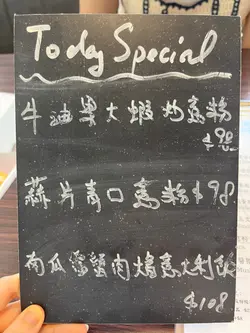 Today Special
牛油果大蝦炒意粉
$98
蒜片青口意粉 $98.
南瓜蟹肉意大利飯
$108